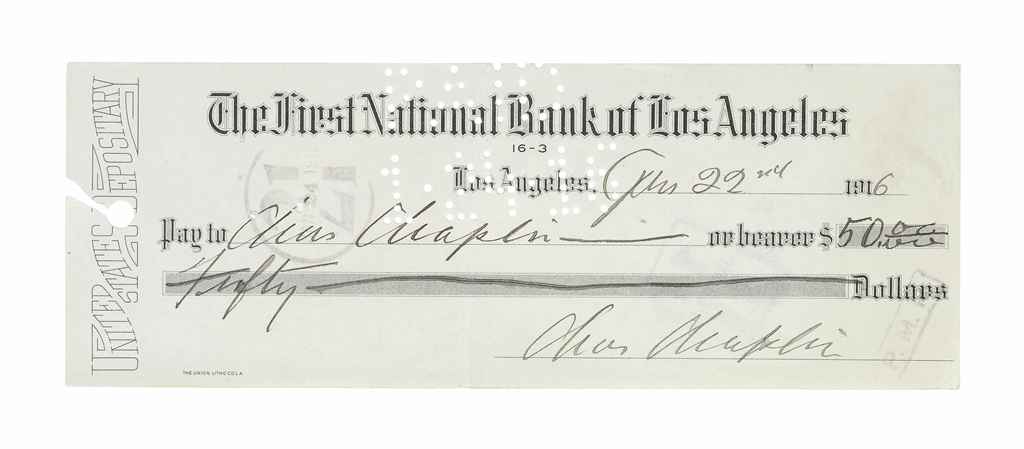 UNITED STATES DEPOSITARY
The First National Bank of Los Angeles
16-3
Los Angeles, Jan 22nd 1916
Pay to Chas Chaplin or bearer $50.00
Fifty Dollars
Chas Chaplin
THE UNION LITHO CO. L.A.